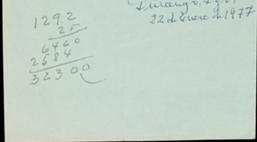 1292
25
6460
2584
32300
Durango, Dgo,
22 de Enero de 1977